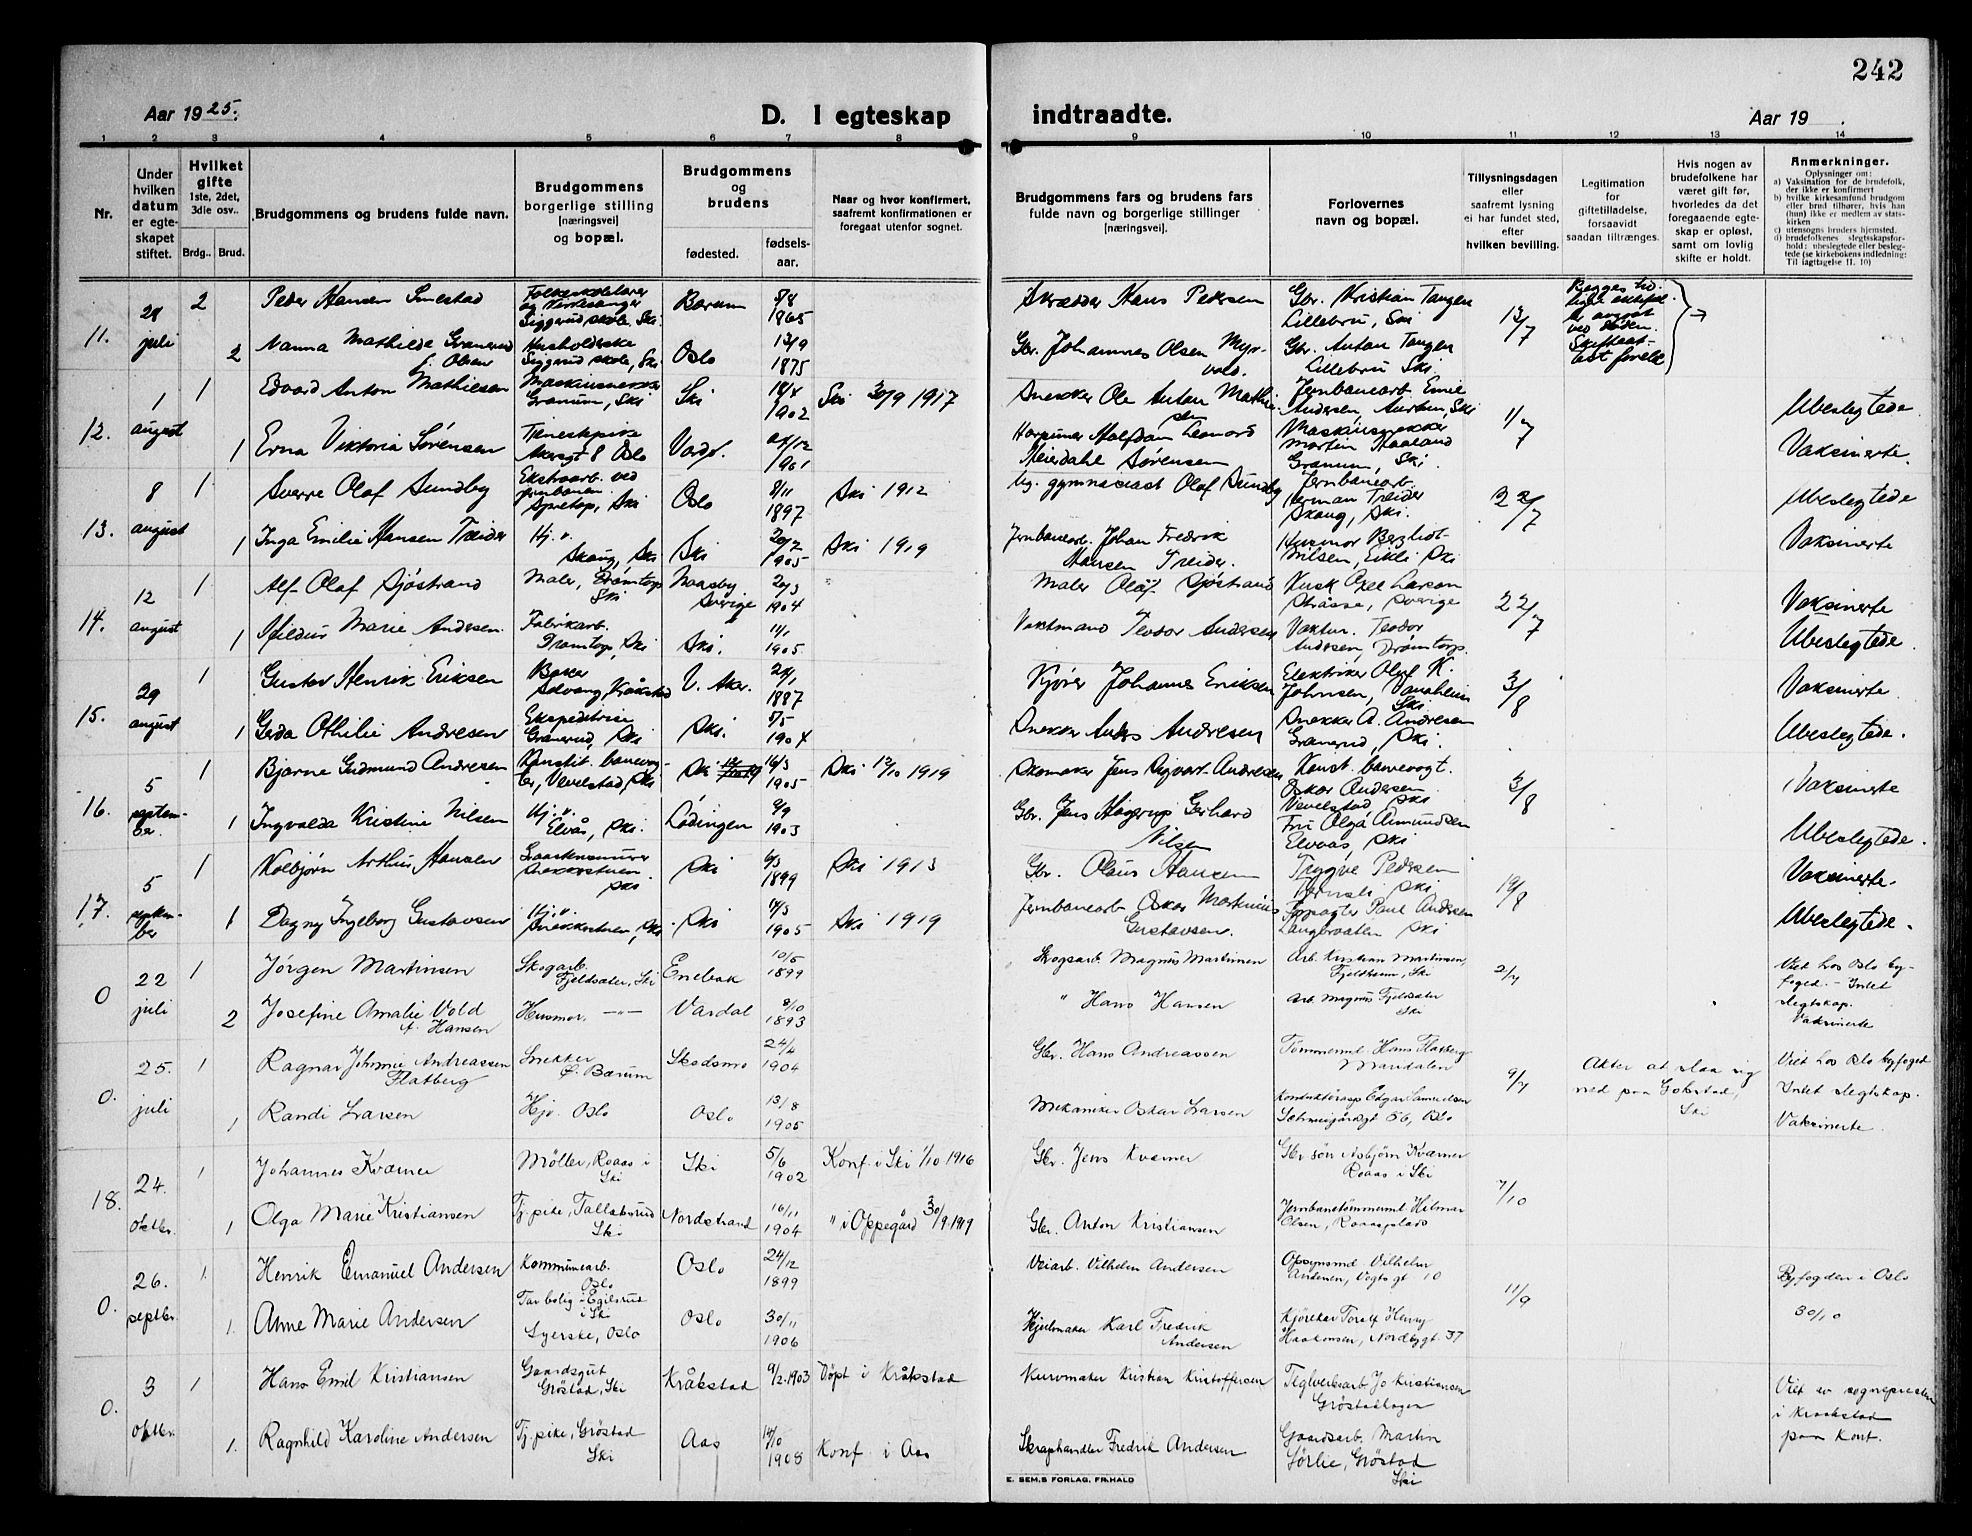 242
Aar 1925.
D. I egteskap
indtraadte.
Aar 19 .
1 2 3 4 5 6 7 8 9 10 11 12 13 14
Nr.
Under hvilken datum er egteskapet stiftet.
Hvilket gifte 1ste, 2det, 3die osv..
Brdg.. Brud.
Brudgommens og brudens fulde navn.
Brudgommens borgerlige stilling [næringsvei] og bopæl.
Brudgommens og brudens
fødested.
fødsels-aar.
Naar og hvor konfirmert, saafremt konfirmationen er foregaat utenfor sognet.
Brudgommens fars og brudens fars fulde navn og borgerlige stillinger [næringsvei].
Forlovernes navn og bopæl.
Tillysningsdagen eller saafremt lysning ei har fundet sted, efter hvilken bevilling.
Legitimation for giftetilladelse, forsaavidt saadan tiltrænges.
Hvis nogen av brudefolkene har været gift før, hvorledes da det foregaaende egteskap er opløst, samt om lovlig skifte er holdt.
Anmerkninger.
Oplysninger om:
a) Vaksination for de brudefolk, der ikke er konfirmert
b) hvilke kirkesamfund brudgom eller brud tilhører, hvis han (hun) ikke er medlem av statskirken
c) utensogns bruders hjemsted.
d) brudefolkenes slegtsskapsforhold; ubeslegtede eller beslegtede (se kirkebokens indledning: Til iagttagelse II. 10)
11. 28 juli 2 Peder Hansen Smestad
Folkeskolelærer og kirkesanger Siggerud skole, Ski
Bærum 8/8 1865
Skrædder Hans Pedersen
Gbr. Kristian Tangen Lillebru, Ski
13/7
2 Nanna Mathilde Granerud f. Olsen
Husholderske Siggerud skole, Ski
Oslo 13/9 1875
Gbr. Johannes Olsen Myrvold.
Gbr. Anton Tangen Lillebru Ski.
12. 1 august 1 Edvard Anton Mathiesen
Maskinsnekker Granum, Ski
Ski 18/4 1902 Ski 30/9 1917
Snekker Ole Anton Mathiesen
Jernbanearb. Emil Andersen, Ski
1/7
Ubeslegtede.
1 Erna Viktoria Sørensen
Tjenestepike Akersgt 8 Oslo
Vadsø. 1901
Halfdan Leonard Meierdahl Sørensen
Maskinsnekker Martin Haaland Granum, Ski.
Vaksinerte.
13. 8 august 1 Sverre Olaf Sundby
Ekstraarb. ved jernbanen. Ski
Oslo 8/11 1897 Ski 1912
gymnasiast Olaf Sundby
Jernbanearb. Herman Treider Skaug, Ski.
22/7
Ubeslegtede
1 Inga Emilie Hansen Treider
Hj.v. Skaug, Ski
Ski 20/2 1905 Ski 1919
Jernbanearb. Johan Fredrik Hansen Treider.
Husmor Bergliot Nilsen, Eikli Ski
Vaksinerte
14. 12 august 1 Alf Olaf Sjöstrand
Maler, Drømtorp Ski
Sverige 20/3 1904
Maler Olof Sjöstrand
Kusk Axel Larson Sverige
22/7
Vaksinerte
1 Marie Andersen
Fabrikarb. Drømtorp, Ski
Ski. 11/1 1905.
Vaktmand Teodor Andersen
Vaktm. Teodor Andersen, Drömtorp.
Ubeslegtede.
15. 29 august 1 Gustav Henrik Eriksen
Baker Solvang, Kråkstad
V. Aker. 1887
Kjører Johannes Eriksen
Elektriker Olaf K. Johnsen, Vanaheim Ski
3/8
Vaksinerte
1 Gerda Othilie Andresen
Ekspeditrise Granerud, Ski
Ski. 8/5 1904
Snekker Anders Andresen
Snekker A. Andresen Granerud, Ski.
Ubeslegtede.
16. 5 september 1 Bjarne Gudmund Andresen
Konstit. banevogter, Vevelstad, Ski
Ski 16/3 1905 Ski 12/10 1919
Skomaker Jens Sigvart Andresen
Konst. banevogt. Oskar Andersen Vevelstad, Ski
3/8
Vaksinerte
1 Ingvalda Kristine Nilsen
Hj.v. Elvås, Ski.
Lödingen 9/9 1903
Gbr. Jens Hagerup Gerhard Nilsen
Fru Olga Amundsen Elvaas, Ski
Ubeslegtede.
17. 5 september 1 Kolbjørn Arthur Hansen
Snekkestuen. Ski
Ski 6/3 1899 Ski 1913
Gbr. Olaus Hansen
Trygve Pedersen Ski
19/8
Vaksinerte.
1 Dagny Ingeborg Gustavsen
Hj.v. Snekkestuen, Ski
Ski 14/3 1905 Ski 1919
Jernbanearb Oskar Martinius Gustavsen.
Paul Andersen Ski
Ubeslegtede.
0 22 juli 1 Jörgen Martinsen
Skogarb. Fjeldsæter, Ski
Enebak 10/5 1899
Skogsarb. Magnus Martinsen
Arb. Kristian Martinsen, Ski
2/7
Viet hos Oslo byfoged. - Intet slegtskap. Vaksinerte
2 Josefine Amalie Vold f. Hansen
Husmor, —"—
Vardal 8/10 1893
" Hans Hansen
Arb. Magnus Fjeldsæter Ski
0. 25. juli 1 Ragnar Johnnie Andreassen Flatberg
Snekker Ö. Bærum
Skedsmo 24/4 1904
Gbr. Hans Andreassen
Tömmerml. Hans Flatberg Maridalen
9/7
Akter at slaa sig ned paa Gobstad, Ski
Viet hos Oslo byfoged Intet slegtskap. Vaksinerte.
1 Randi Larsen
Hjv. Oslo
Oslo 13/8 1905
Mekaniker Oskar Larsen
Edgar Samuelsen Schweigårdsgt 56, Oslo
18. 24. oktbr. 1 Johannes Kværner
Möller, Roaas i Ski
Ski 5/6 1902 Konf. i Ski 1/10 1916
Gbr. Jens Kværner
Gbr sön Asbjörn Kværner Roaas i Ski
7/10
1 Olga Marie Kristiansen
Tj.pike, Tallaksrud Ski
Nordstrand 16/11 1904 " i Oppegård 30/9 1919
Gbr. Anton Kristiansen
Jernbanetömmerml. Hilmar Olsen, Roaasplads
0. 26. septbr. 1. Henrik Emanuel Andersen
Kommunearb. Oslo
Tar bolig i Egilsrud i Ski
Oslo 24/12 1899
Veiarb. Vilhelm Andersen
Opsynsmd Vilhelm Andersen, Vogtsgt 10
11/9
Byfogden i Oslo 30/10
1. Anne Marie Andersen
Syerske, Oslo
Oslo 30/11 1906
Hjulmaker Karl Fredrik Andersen
Kjörekar Toralf Henry Haakonsen, Nordbygt 37
0. 3 oktbr. 1 Hans Emil Kristiansen
Gaardsgut Gröstad, Ski
Kråkstad 9/2 1903 Döpt i Kråkstad
Kurvmaker Kristian Kristoffersen
Teglverksarb. Jo Kristiansen Gröstadhagen
Viet av sognepresten i Kraakstad paa kont.
1. Ragnhild Karoline Andersen
Tj.pike, Gröstad Ski
Aas 14/10 1908 Konf. i Aas
Skraphandler Fredrik Andersen
Gaardsarb. Martin Sörlie, Gröstad Ski
E. SEM.S FORLAG. FR.HALD